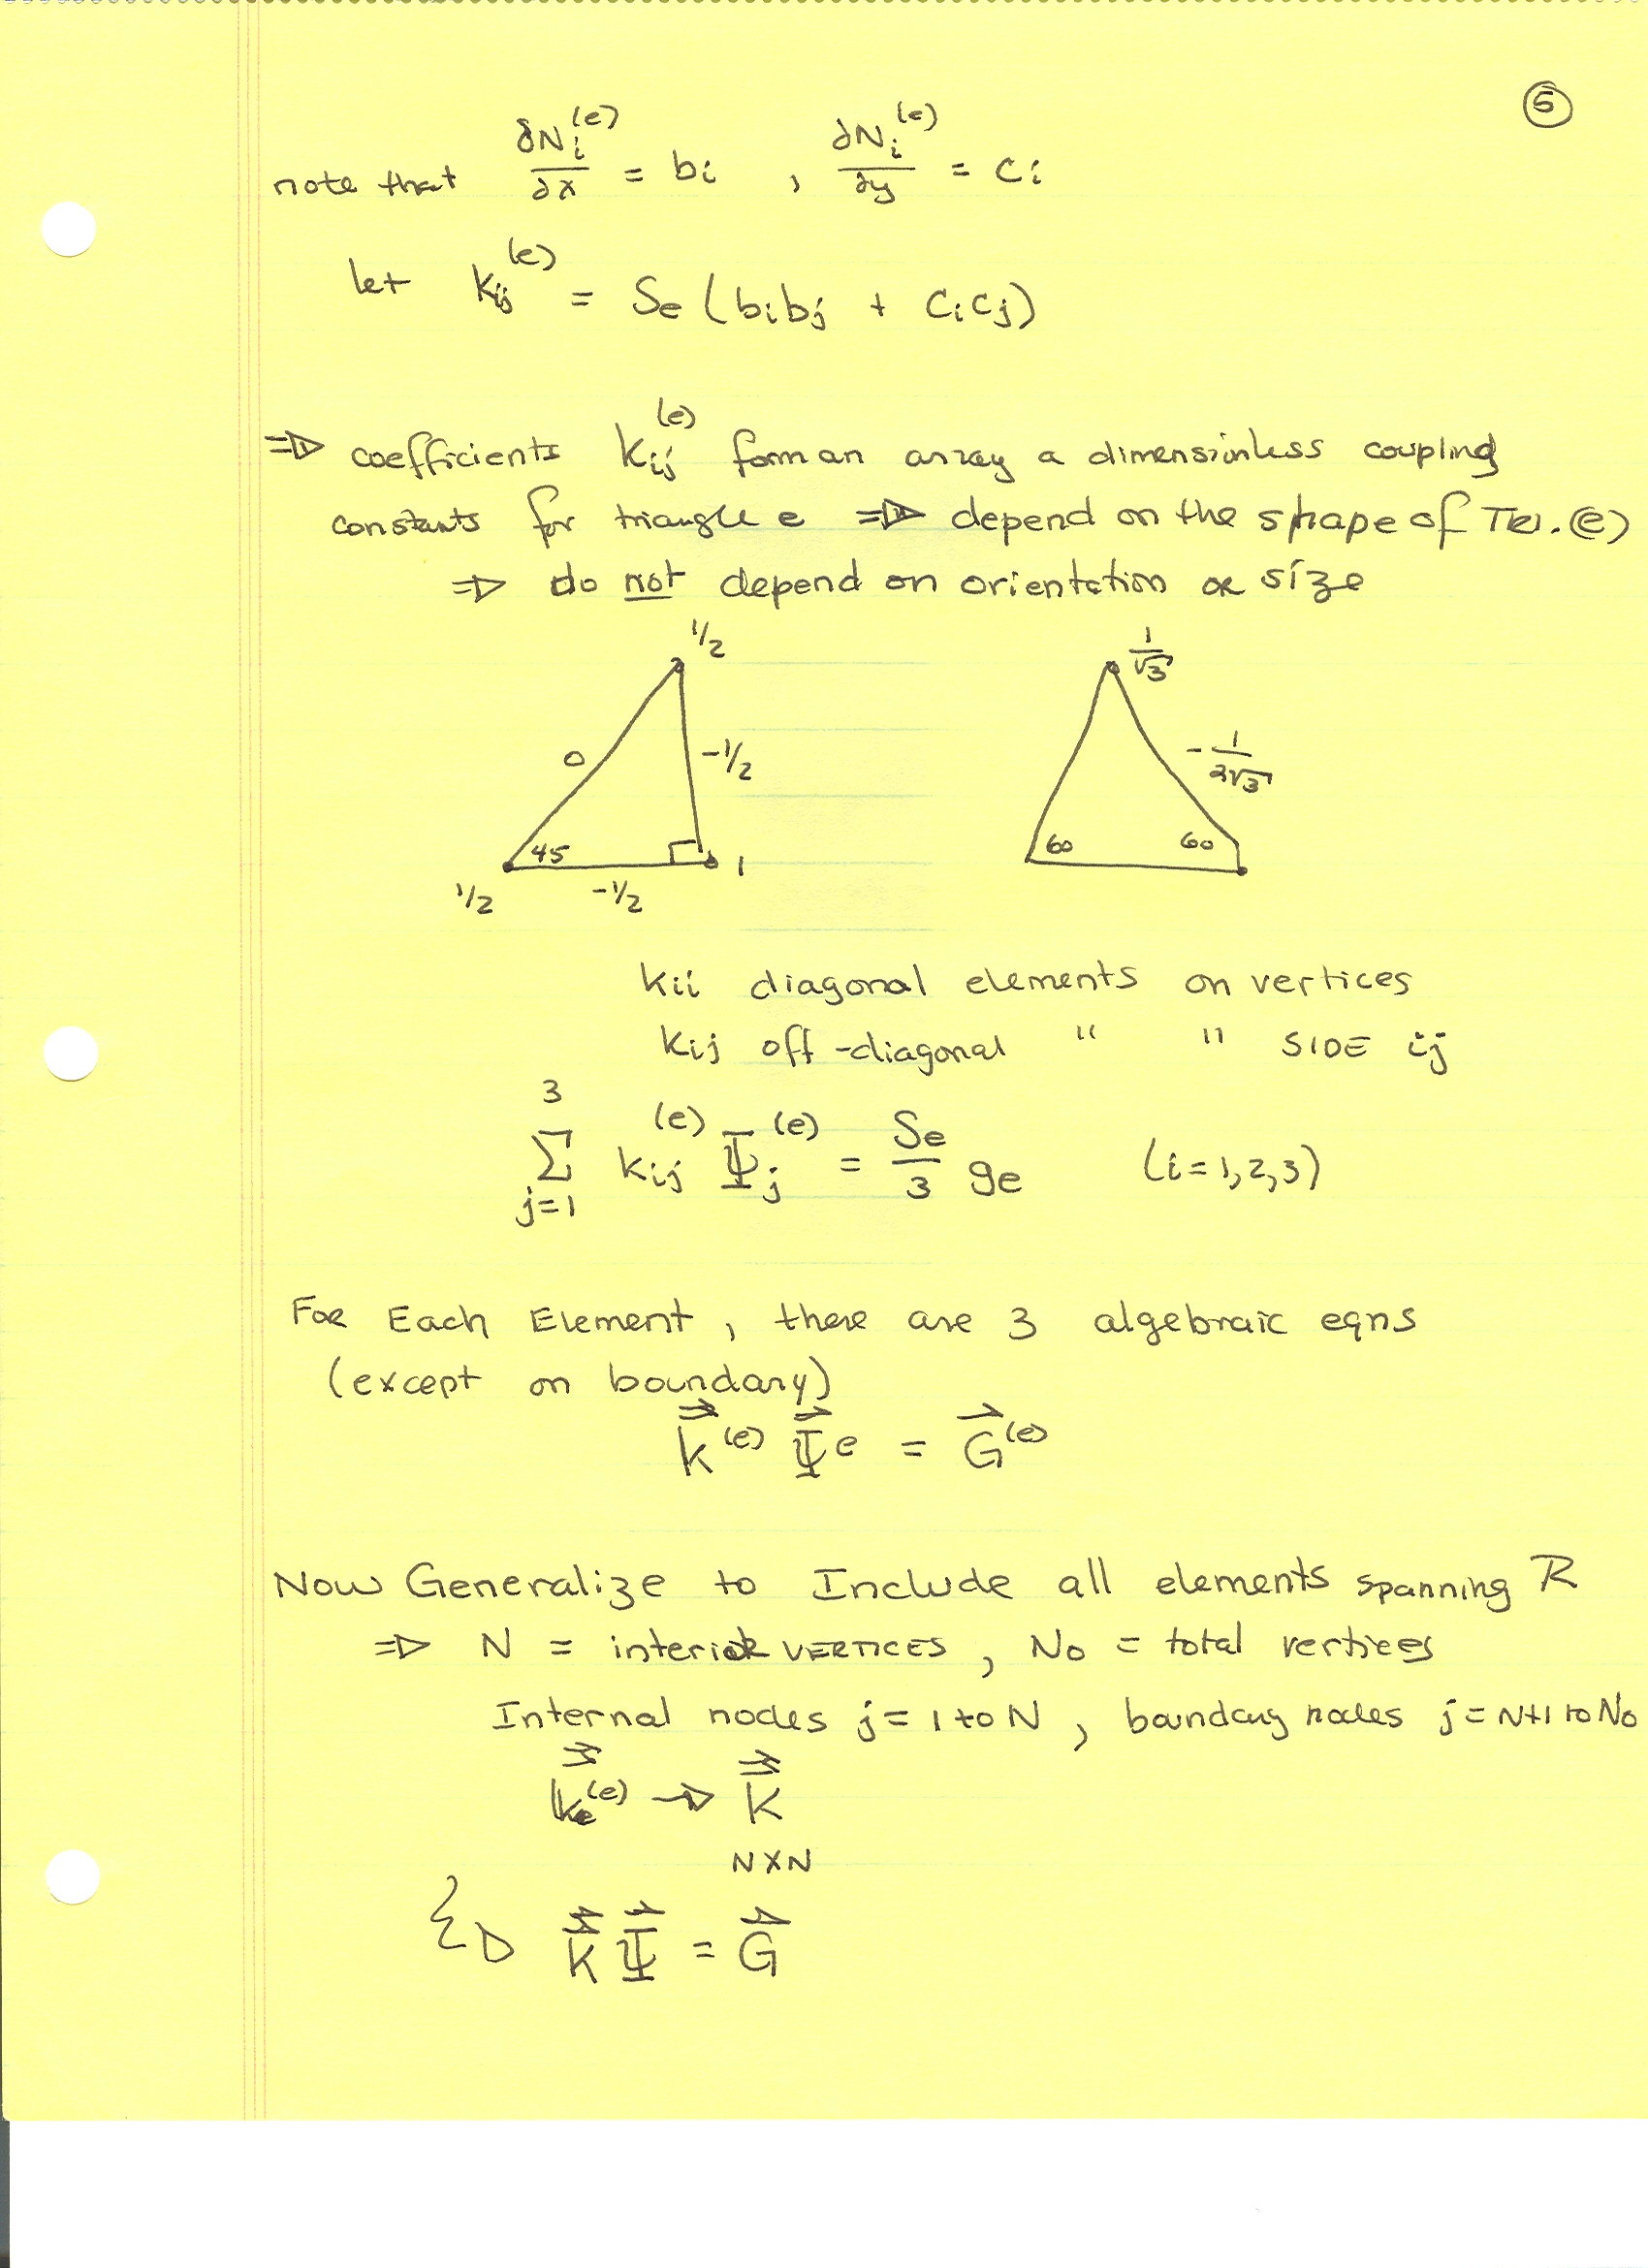 5
note that ∂Nᵢ⁽ᵉ⁾/∂x = bᵢ , ∂Nᵢ⁽ᵉ⁾/∂y = Cᵢ
let kᵢⱼ⁽ᵉ⁾ = Sₑ (bᵢbⱼ + CᵢCⱼ)
⇒ coefficients kᵢⱼ⁽ᵉ⁾ form an array a dimensionless coupling
constants for triangle e ⇒ depend on the shape of TRI. (e)
⇒ do not depend on orientation or size
1/2
0
-1/2
45
1
1/2
-1/2
1/√3
-1/2√3
60 60
kii diagonal elements on vertices
kij off-diagonal " " SIDE ij
3
∑ kᵢⱼ⁽ᵉ⁾ Ψⱼ⁽ᵉ⁾ = Sₑ/3 gₑ (i=1,2,3)
j=1
For Each Element, there are 3 algebraic eqns
(except on boundary)
k⁽ᵉ⁾ Ψᵉ = G⁽ᵉ⁾
Now Generalize to Include all elements spanning R
⇒ N = interior VERTICES, No = total vertices
Internal nodes j=1 to N, boundary nodes j=N+1 to No
kₑ⁽ᵉ⁾ → K
N X N
K Ψ = G